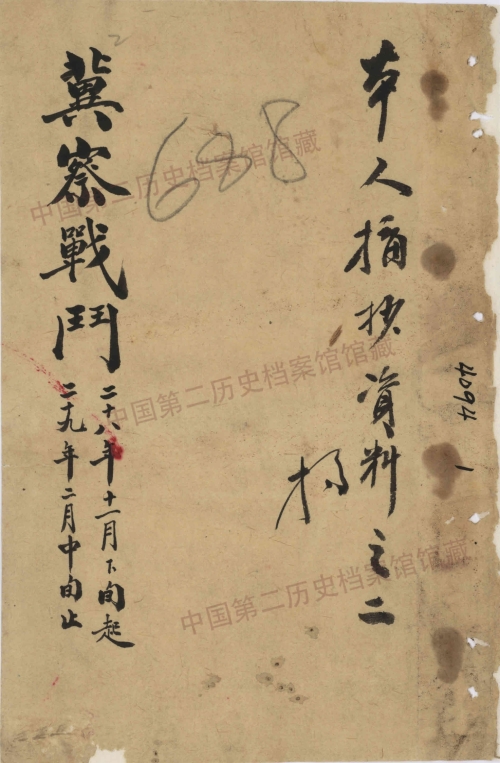 本人摘抄資料之二
冀察戰鬥
二十八年十一月下旬起
二十九年二月中旬止
688
4094
1
中国第二历史档案馆馆藏
中国第二历史档案馆馆藏
中国第二历史档案馆馆藏